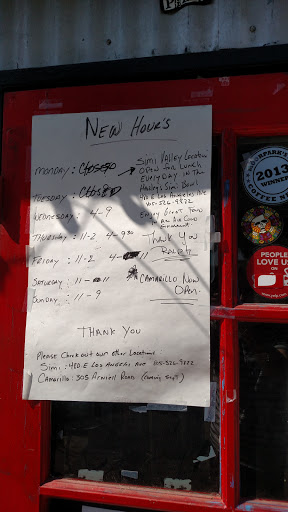 NEW HOUR'S
MONDAY : CLOSED
TUESDAY : CLOSED
WEDNESDAY : 4-9
THURSDAY : 11-2 4-9
FRIDAY : 11-2 4- 11
SATURDAY : 11- 11
SUNDAY : 11-9
SIMI VALLEY LOCATION
OPEN FOR LUNCH
EVERYDAY IN THE
HARLEY'S SIMI BOWL
480 E LOS ANGELES AVE
805-526-9822
ENJOY GREAT FOOD
IN AN AIR COND
THANK YOU
RALPH
CAMARILLO NOW
OPEN.
THANK YOU
Please Check out our other Locations
SIMI : 480 E LOS ANGELES AVE 805-526-9822
CAMARILLO : 305 ARNEILL ROAD (Coming Sept.)
2013
WINNER
COFFEE
PEOPLE
LOVE US
ON